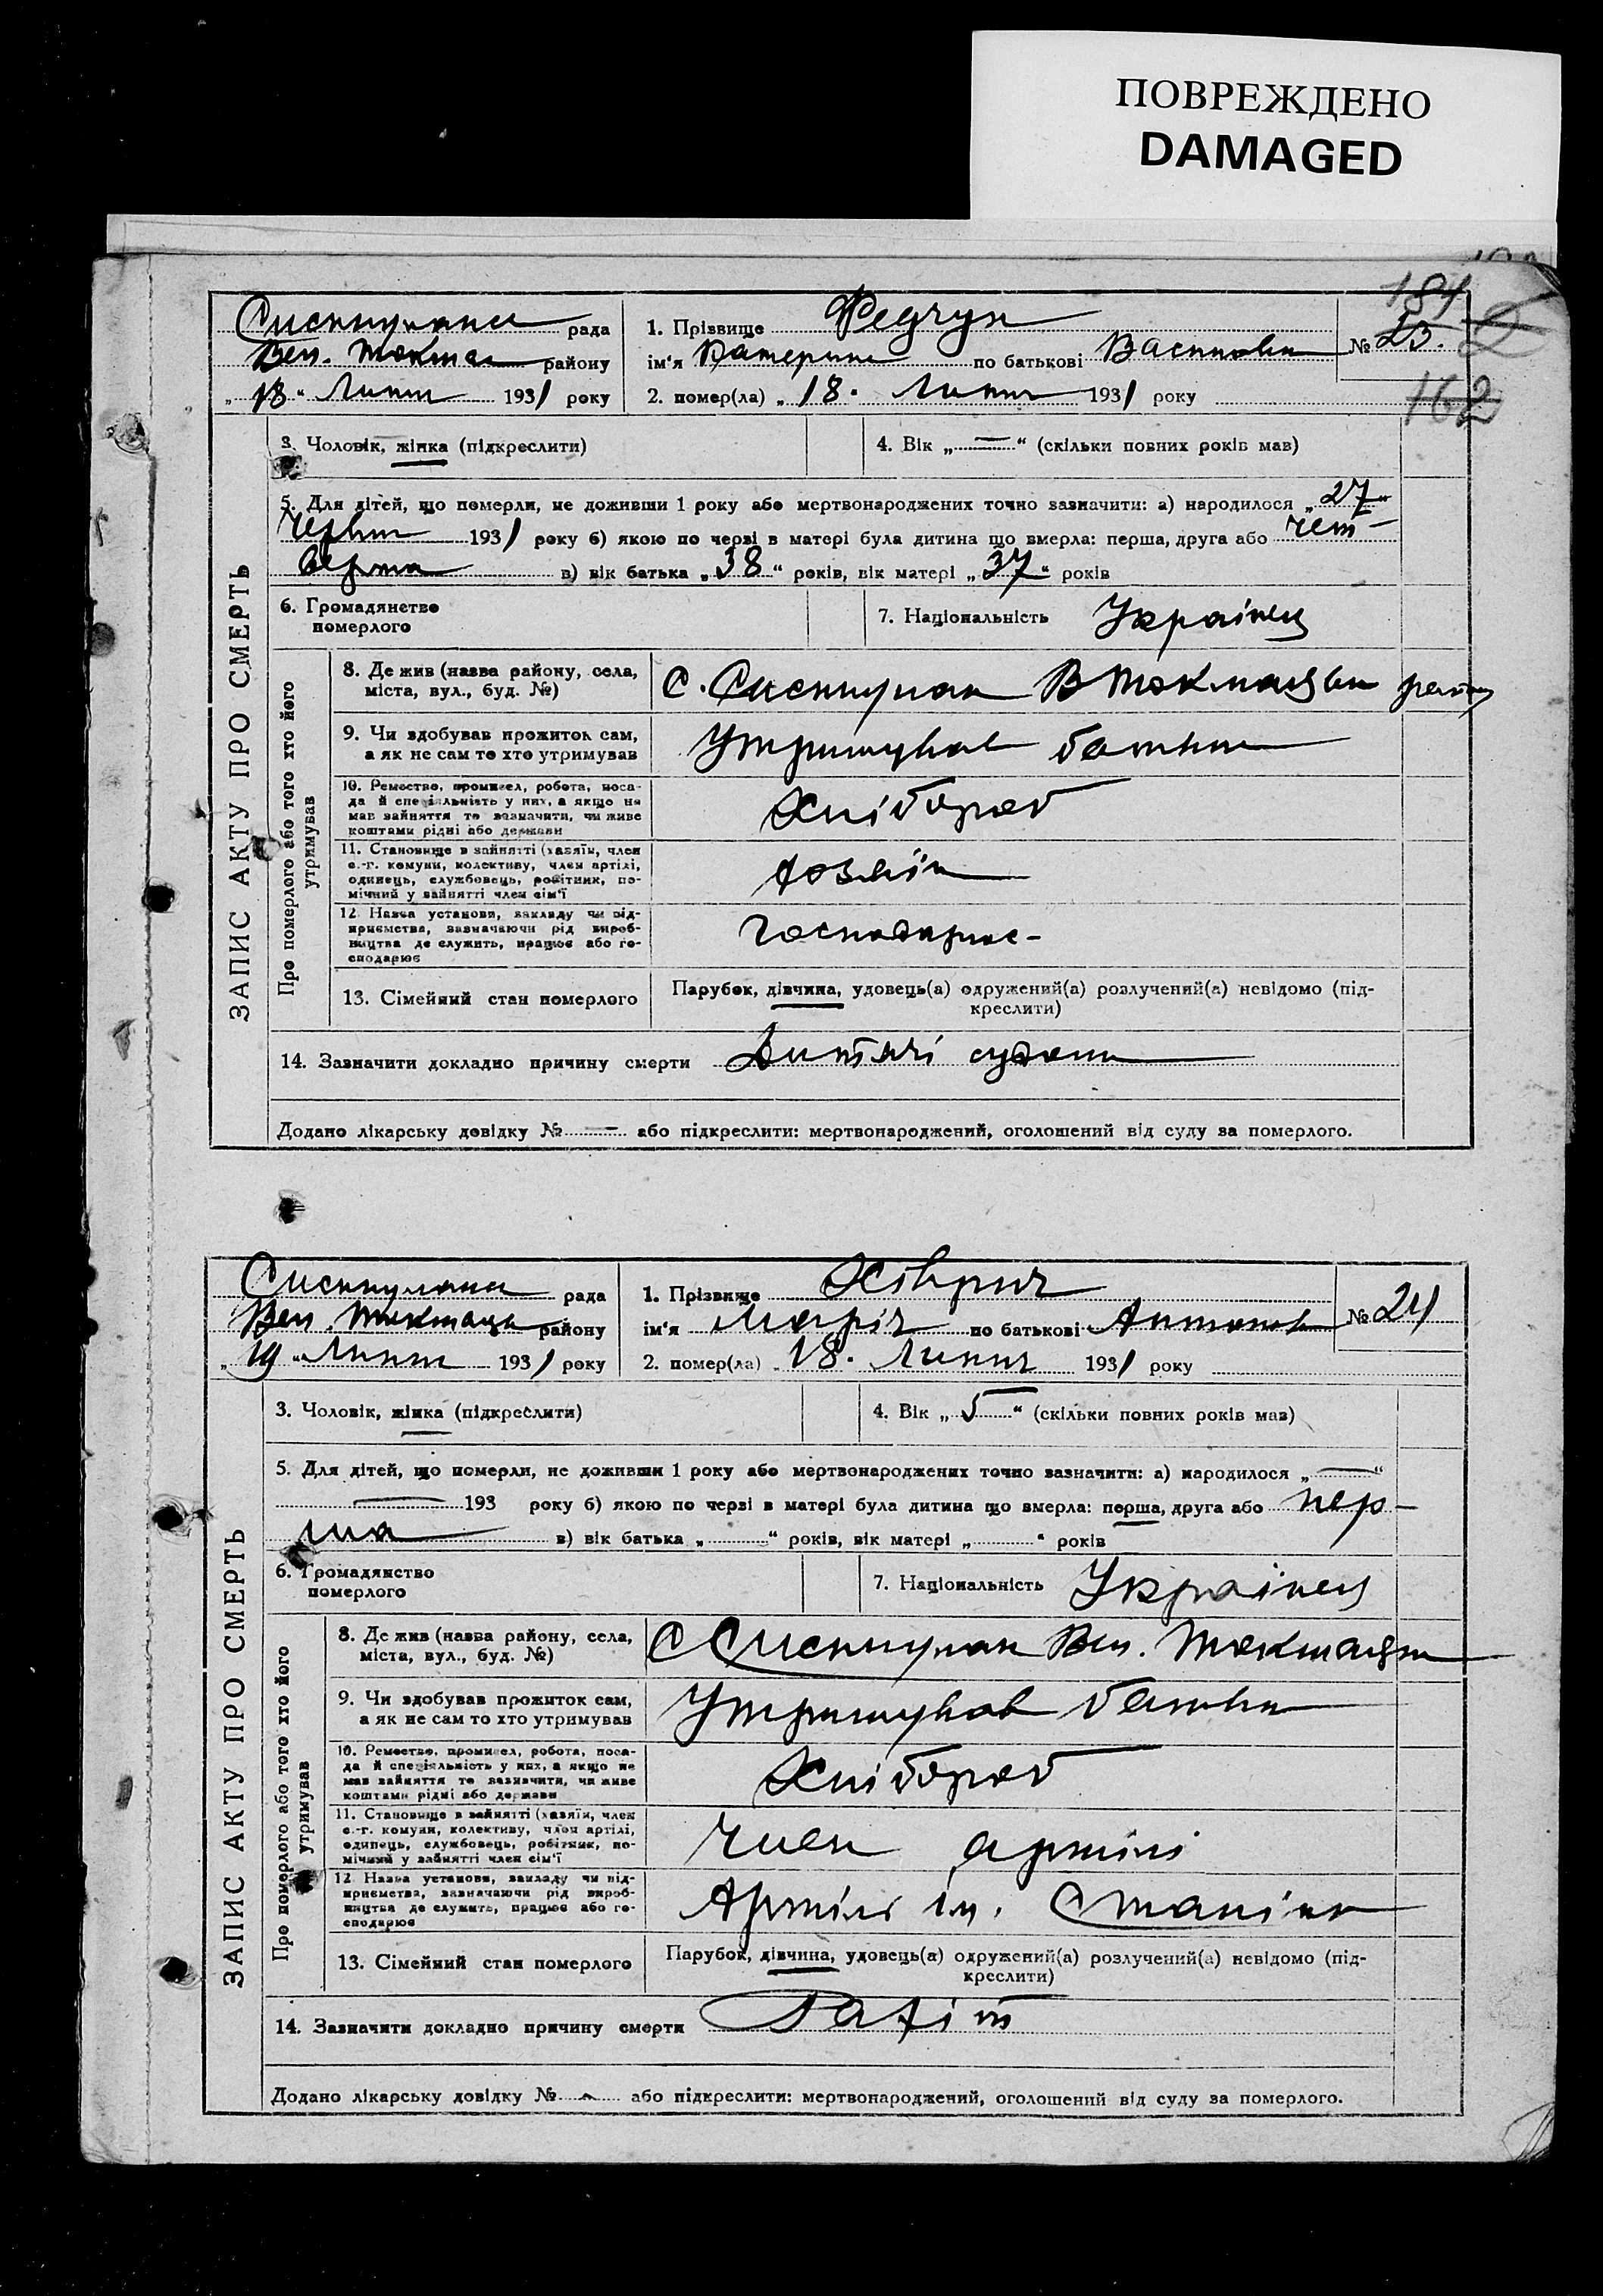 ПОВРЕЖДЕНО
DAMAGED
184
162
рада
1. Прізвище Федчун
Вел. Токмац району
ім'я Катерина по батькові Василівн № 23.
„18“ Липня 1931 року
2. помер(ла) „18. Липня 1931 року
3. Чоловік, жінка (підкреслити)
4. Вік „—“ (скільки повних років мав)
5. Для дітей, що померли, не доживши 1 року або мертвонароджених точно зазначити: а) народилося „27“
Червня 1931 року б) якою по черзі в матері була дитина що вмерла: перша, друга або чет-
верта в) вік батька „38“ років, вік матері „37“ років
6. Громадянство
померлого
7. Національність Українец
ЗАПИС АКТУ ПРО СМЕРТЬ
Про померлого або того хто його
утримував
8. Де жив (назва району, села,
міста, вул., буд. №)
9. Чи здобував прожиток сам,
а як не сам то хто утримував
Утримував батько
10. Ремество, промисел, робота, поса-
да й спеціяльність у них, а якщо не
мав зайняття то зазначити, чи живе
коштами рідні або держави
Хлібороб
11. Становище в зайнятті (хазяїн, член
с.-г. комуни, колективу, член артілі,
одинець, службовець, робітник, по-
мічний у зайнятті член сім'ї
хозяїн
12 Назва установи, закладу чи під-
приємства, зазначаючи рід вироб-
ництва де служить, працює або го-
сподарює
Господарює-
13. Сімейний стан померлого
Парубок, дівчина, удовець(а) одружений(а) розлучений(а) невідомо (під-
креслити)
14. Зазначити докладно причину смерти Дитячі судоми
Додано лікарську довідку № — або підкреслити: мертвонароджений, оголошений від суду за померлого.
рада
1. Прізвище Хіврич
Вел. Токмацьк району
ім'я Марія по батькові Антонов № 24
„19“ Липня 1931 року
2. помер(ла) „18. Липня 1931 року
3. Чоловік, жінка (підкреслити)
4. Вік „5“ (скільки повних років мав)
5. Для дітей, що померли, не доживши 1 року або мертвонароджених точно зазначити: а) народилося „—“
— 193 року б) якою по черзі в матері була дитина що вмерла: перша, друга або пер-
ша в) вік батька „“ років, вік матері „“ років
6. Громадянство
померлого
7. Національність Українец
ЗАПИС АКТУ ПРО СМЕРТЬ
Про померлого або того хто його
утримував
8. Де жив (назва району, села,
міста, вул., буд. №)
9. Чи здобував прожиток сам,
а як не сам то хто утримував
Утримував батько
10. Ремество, промисел, робота, поса-
да й спеціяльність у них, а якщо не
мав зайняття то зазначити, чи живе
коштами рідні або держави
Хлібороб
11. Становище в зайнятті (хазяїн, член
с.-г. комуни, колективу, член артілі,
одинець, службовець, робітник, по-
мічний у зайнятті член сім'ї
Член артілі
12 Назва установи, закладу чи під-
приємства, зазначаючи рід вироб-
ництва де служить, працює або го-
сподарює
Артіль ім. Сталіна
13. Сімейний стан померлого
Парубок, дівчина, удовець(а) одружений(а) розлучений(а) невідомо (під-
креслити)
14. Зазначити докладно причину смерти Рахіт
Додано лікарську довідку № або підкреслити: мертвонароджений, оголошений від суду за померлого.